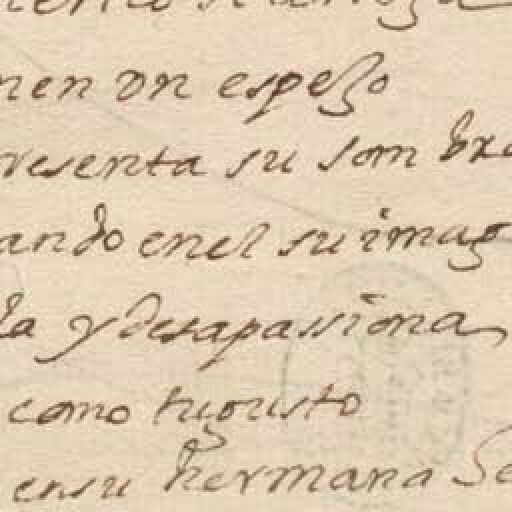 nen vn espejo
resenta su som bra
ando enel su imag
la y desapassiona
como tu gusto
ensu hermana Se